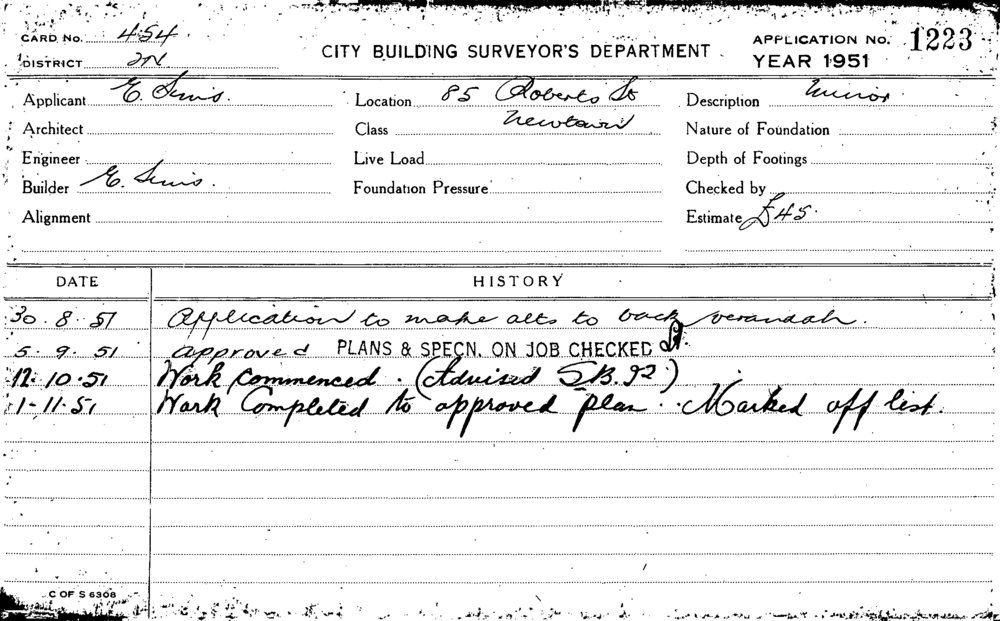 CARD No. 454
DISTRICT 2N.
CITY BUILDING SURVEYOR'S DEPARTMENT
APPLICATION No. 1223
YEAR 1951
Applicant E. Sims.
Location 85 Roberts St
Newtown
Description Minor
Architect
Class
Nature of Foundation
Engineer
Live Load
Depth of Footings
Builder E. Sims.
Foundation Pressure
Checked by
Alignment
Estimate £45.
DATE HISTORY
30.8.51 Application to make alts to back verandah.
5.9.51 approved PLANS & SPECN. ON JOB CHECKED
12.10.51 Work Commenced. (Advised S.B.92.)
1-11.51 Work Completed to approved plan. Marked off list.
C OF S 6308